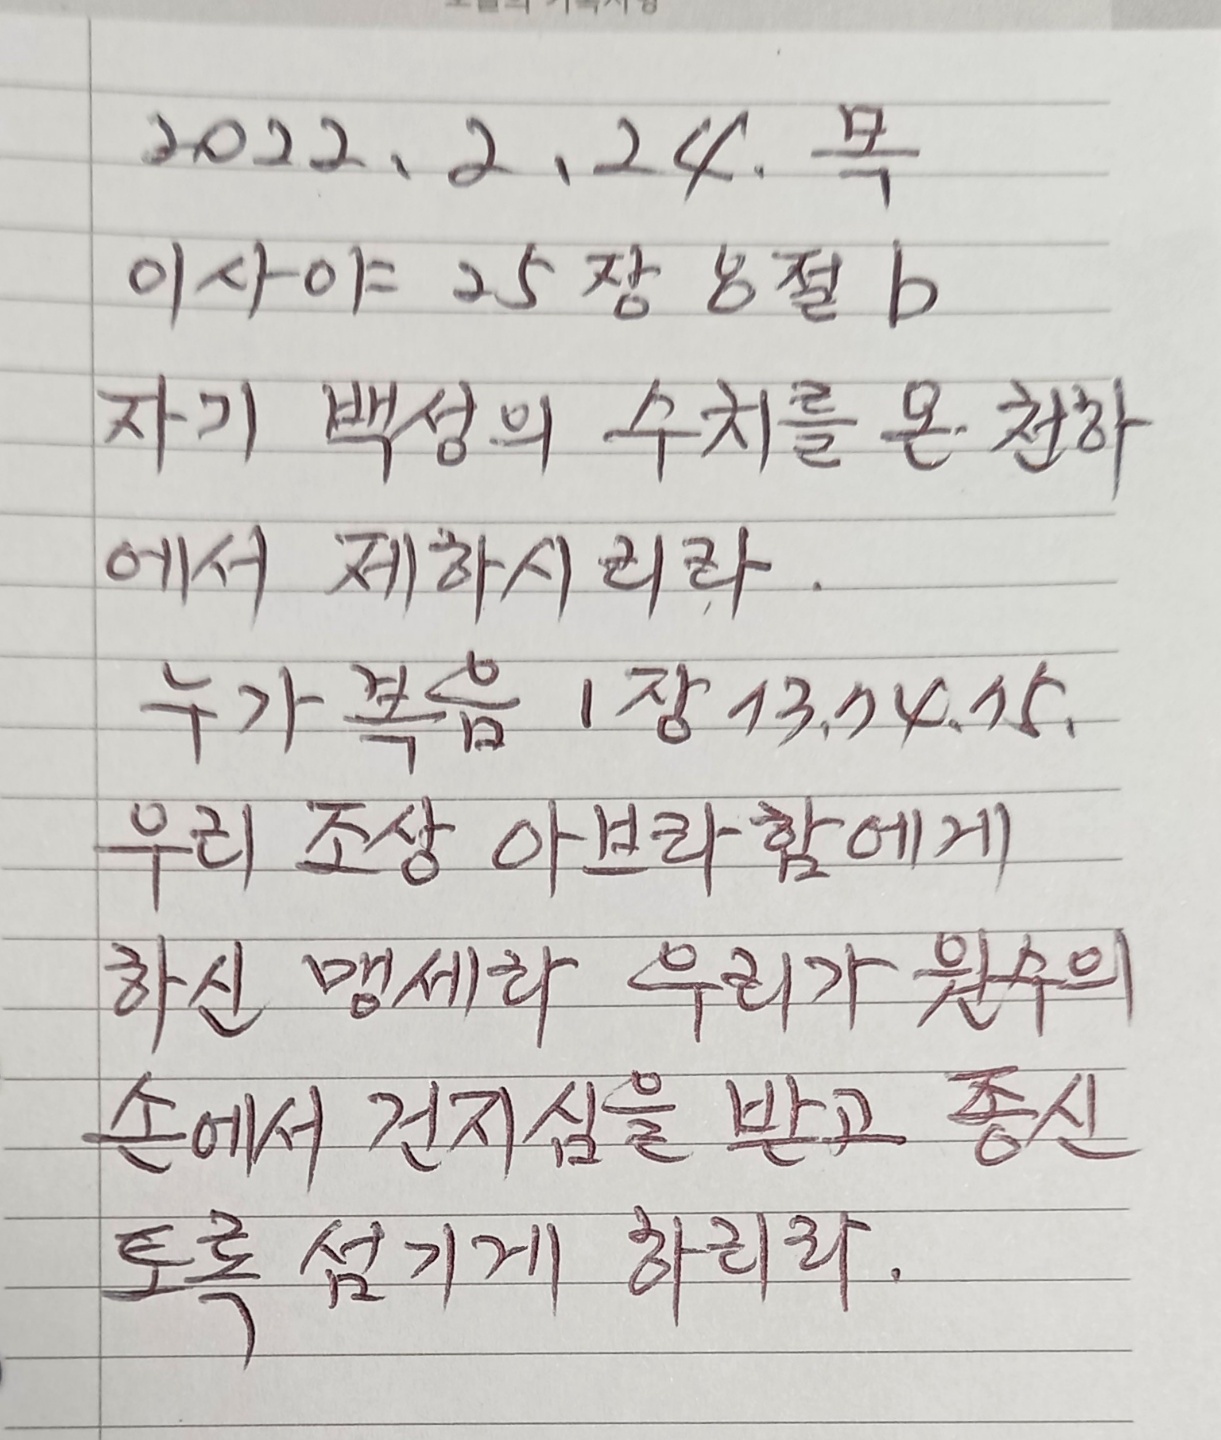 2022. 2. 24. 목
이사야 25장 8절 b
자기 백성의 수치를 온 천하
에서 제하시리라.
누가복음 1장 13.14.15.
우리 조상 아브라함에게
하신 맹세라 우리가 원수의
손에서 건지심을 받고 종신
토록 섬기게 하리라.